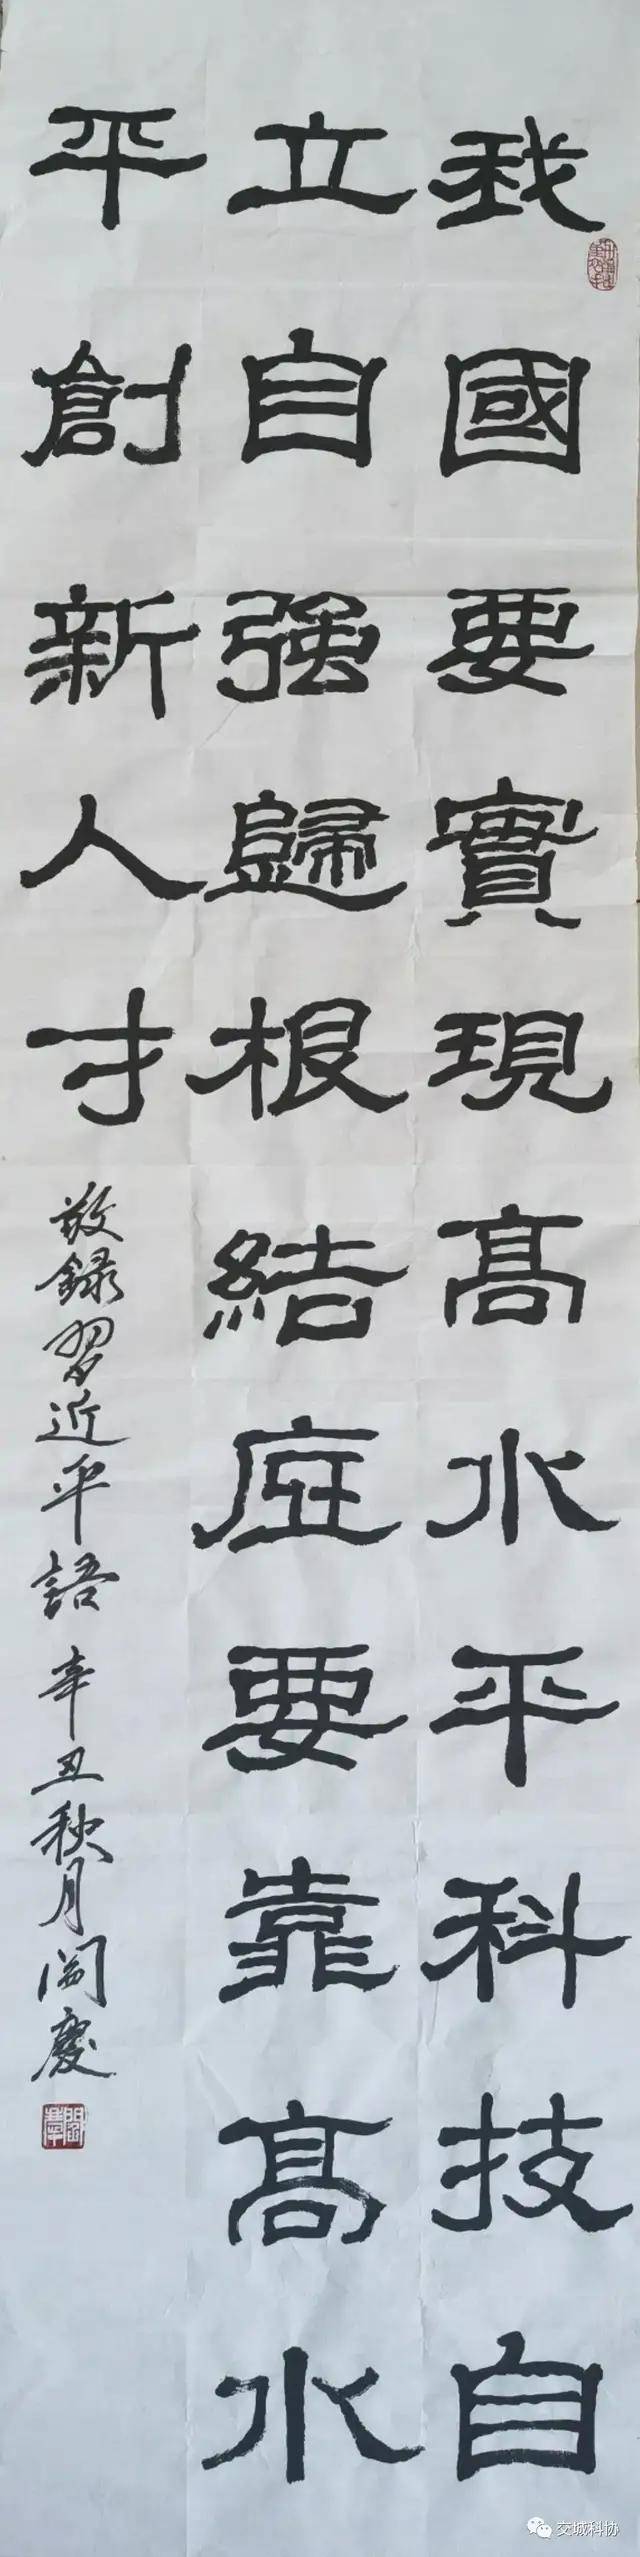 我國要實現髙水平科技自
立自強歸根結庭要靠髙水
平創新人才
敬録習近平語 辛丑秋月 閻慶
交城科协